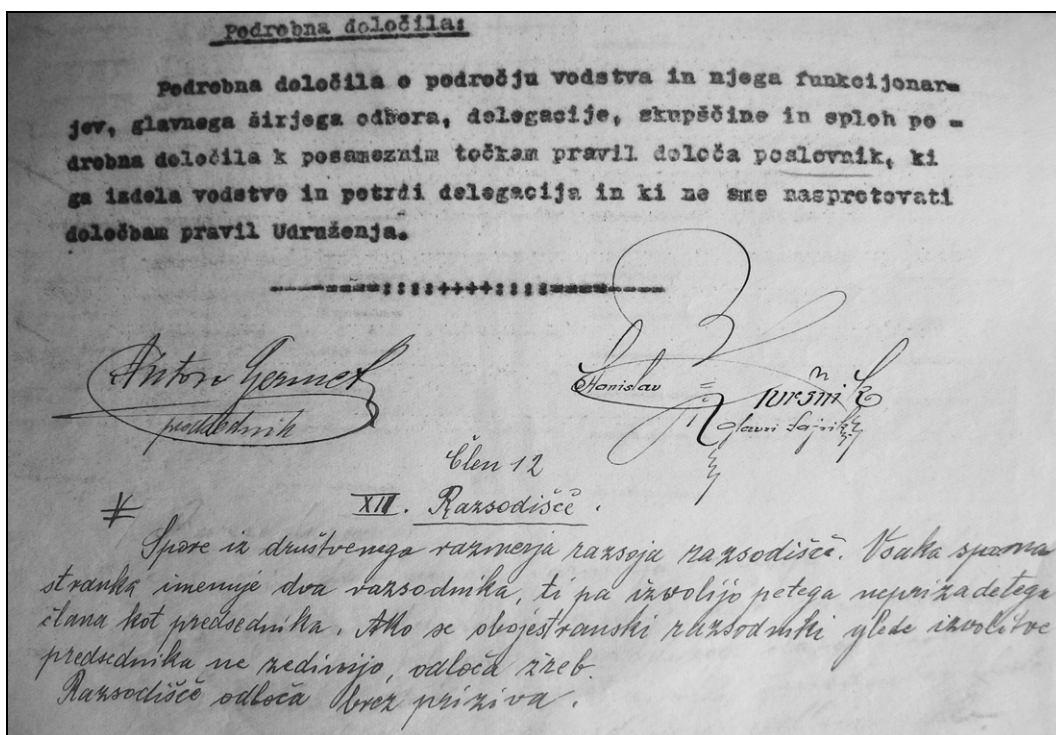 Podrobna določila:
Podrobna določila o področju vodstva in njega funkcijonar=
jev, glavnega širjega odbora, delegacije, skupščine in sploh po =
drobna določila k posameznim točkam pravil določa poslovnik, ki
ga izdela vodstvo in potrdi delegacija in ki ne sme nasprotovati
določbam pravil Udruženja.
Anton Germek
predsednik
Stanislav
glavni tajnik
Člen 12
XII. Razsodišče.
Spore iz društvenega razmerja razsoja razsodišče. Vsaka sporna
stranka imenuje dva razsodnika, ti pa izvolijo petega neprizadetega
člana kot predsednika. Ako se obojestranski razsodniki glede izvolitve
predsednika ne zedinijo, odloča žreb.
Razsodišče odloča brez priziva.